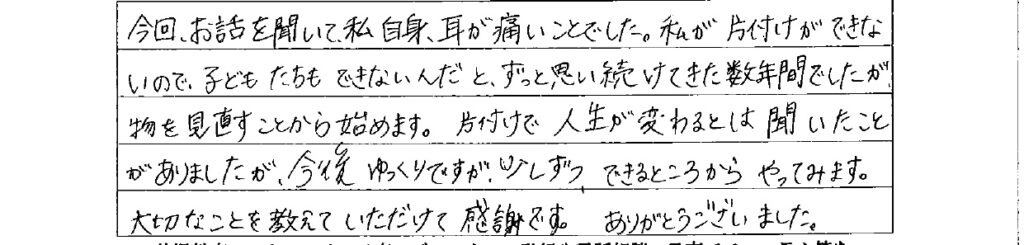 今回、お話を聞いて、私自身、耳が痛いことでした。私が片付けができな
いので、子どもたちもできないんだと、ずっと思い続けてきた数年間でしたが、
物を見直すことから始めます。片付けで人生が変わるとは聞いたこと
がありましたが、今後ゆっくりですが、少しずつ、できるところからやってみます。
大切なことを教えていただけて感謝です。ありがとうございました。